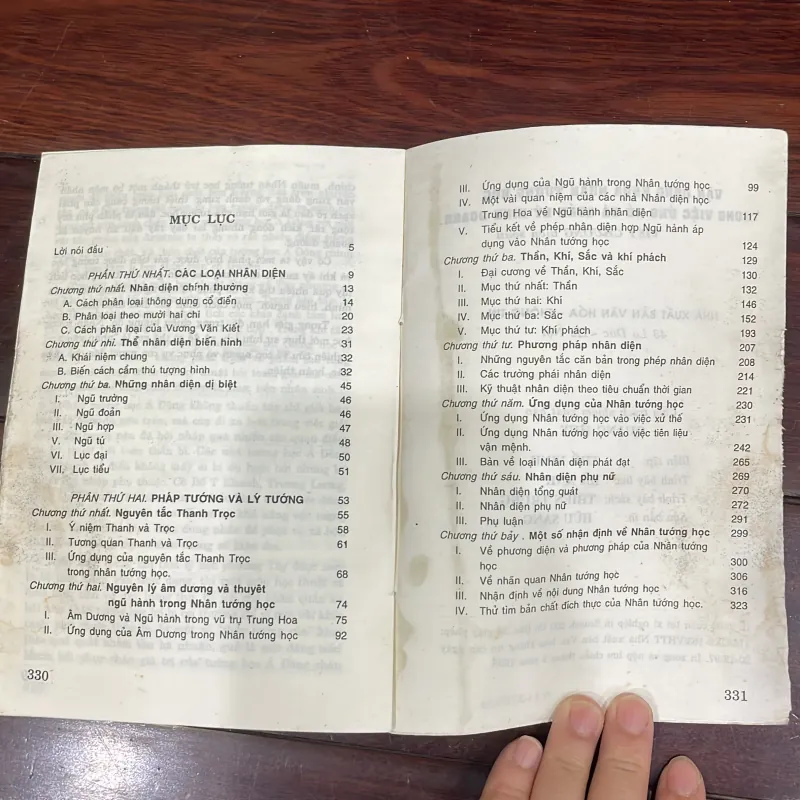 MỤC LỤC
Lời nói đầu 5
PHẦN THỨ NHẤT. CÁC LOẠI NHÂN DIỆN 9
Chương thứ nhất. Nhân diện chính thường 13
A. Cách phân loại thông dụng cổ điển 14
B. Phân loại theo mười hai chi 20
C. Cách phân loại của Vương Văn Kiết 23
Chương thứ nhì. Thể nhân diện biến hình 31
A. Khái niệm chung 32
B. Biến cách cầm thú tượng hình 32
Chương thứ ba. Những nhân diện dị biệt 45
I. Ngũ trưởng 46
II. Ngũ đoản 46
III. Ngũ hợp 47
V. Ngũ tủ 48
VI. Lục đại 50
VII. Lục tiểu 51
PHẦN THỨ HAI. PHÁP TƯỚNG VÀ LÝ TƯỚNG 53
Chương thứ nhất. Nguyên tắc Thanh Trọc 55
I. Ý niệm Thanh và Trọc 58
II. Tương quan Thanh và Trọc 61
III. Ứng dụng của nguyên tắc Thanh Trọc
trong nhân tướng học. 68
Chương thứ hai. Nguyên lý âm dương và thuyết
ngũ hành trong Nhân tướng học 74
I. Âm Dương và Ngũ hành trong vũ trụ Trung Hoa 75
II. Ứng dụng của Âm Dương trong Nhân tướng học 92
330
III. Ứng dụng của Ngũ hành trong Nhân tướng học 99
IV. Một vài quan niệm của các nhà Nhân diện học
Trung Hoa về Ngũ hành nhân diện 117
V. Tiểu kết về phép nhân diện hợp Ngũ hành áp
dụng vào Nhân tướng học 124
Chương thứ ba. Thần, Khí, Sắc và khí phách 129
I. Đại cương về Thần, Khí, Sắc 130
II. Mục thứ nhất: Thần 132
III. Mục thứ hai: Khí 146
IV. Mục thứ ba: Sắc 152
V. Mục thứ tư: Khí phách 193
Chương thứ tư. Phương pháp nhân diện 207
I. Những nguyên tắc căn bản trong phép nhân diện 208
II. Các trường phái nhân diện 214
III. Kỹ thuật nhân diện theo tiêu chuẩn thời gian 221
Chương thứ năm. Ứng dụng của Nhân tướng học 230
I. Ứng dụng Nhân tướng học vào việc xử thế 231
II. Ứng dụng Nhân tướng học vào việc tiên liệu
vận mệnh. 242
III. Bàn về loại Nhân diện phát đạt 265
Chương thứ sáu. Nhân diện phụ nữ 269
I. Nhân diện tổng quát 270
II. Nhân diện phụ nữ 272
III. Phụ luận 291
Chương thứ bảy . Một số nhận định về Nhân tướng học 299
I. Về phương diện và phương pháp của Nhân tướng
học 300
II. Về nhãn quan Nhân tướng học 306
III. Nhận định về nội dung Nhân tướng học 316
IV. Thử tìm bản chất đích thực của Nhân tướng học. 323
331